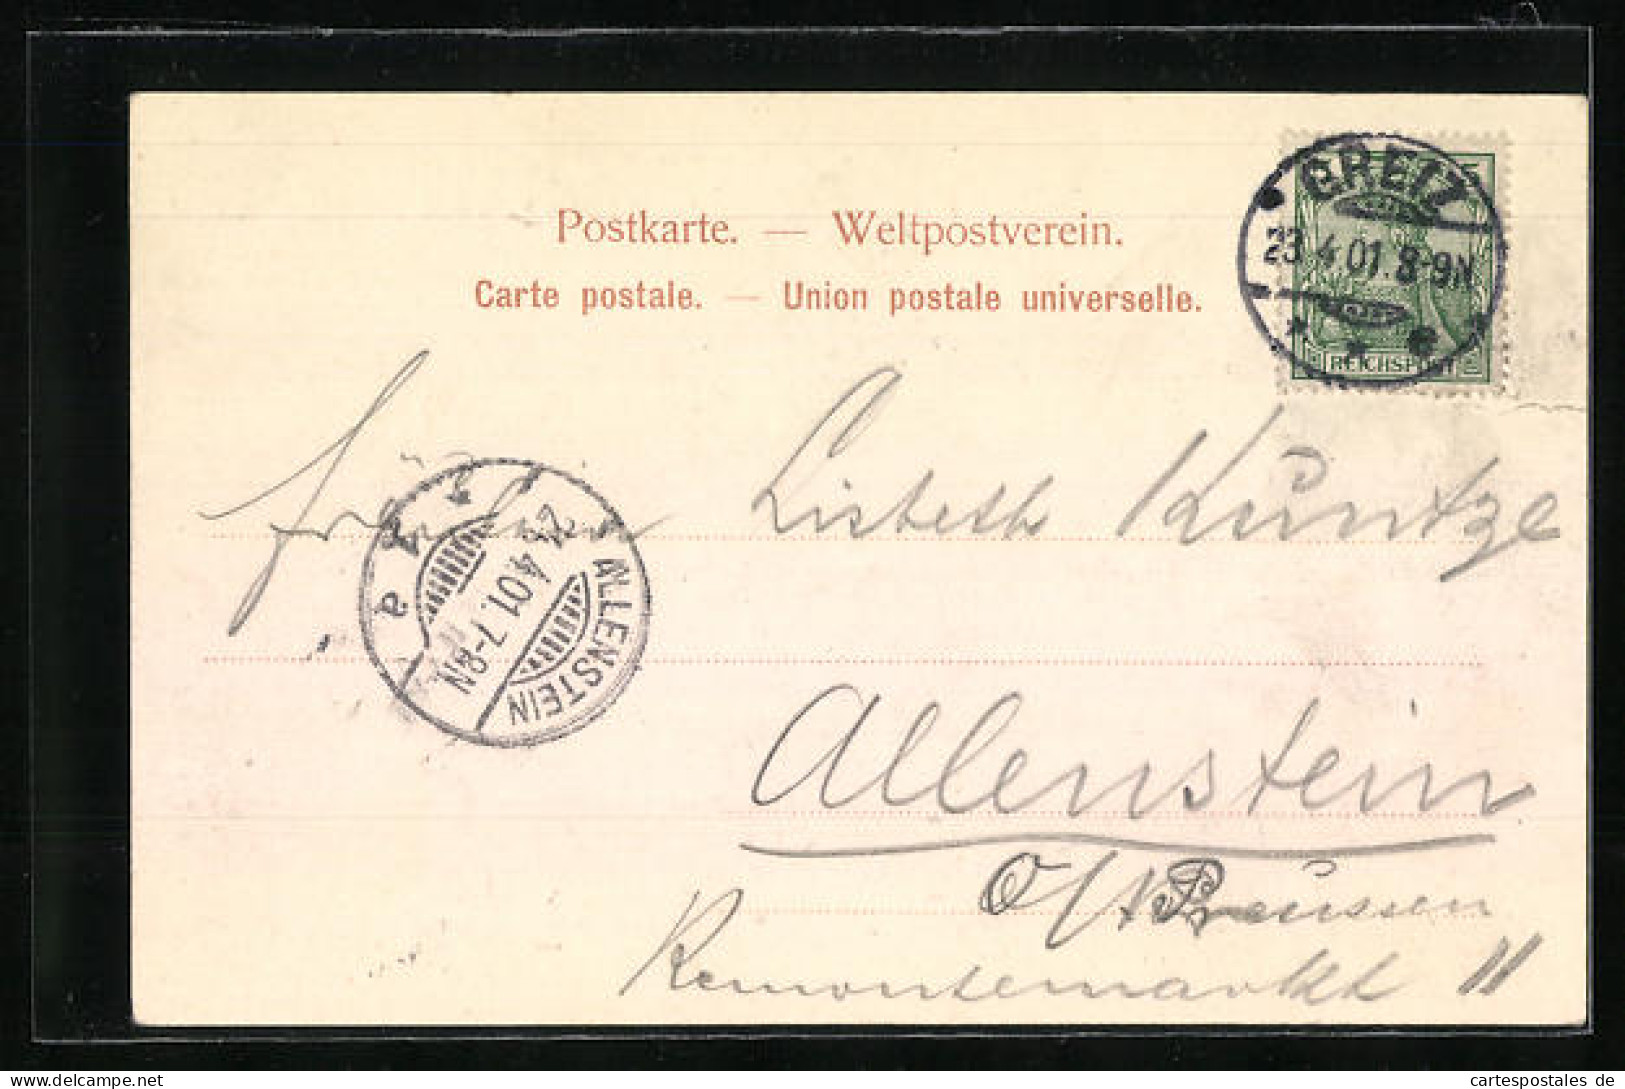 Postkarte. — Weltpostverein.
Carte postale. — Union postale universelle.
GREIZ
23.4.01.8-9N
5
REICHSPOST
Fräulein Lisbeth Kuntze
ALLENSTEIN
24.4.01.7-8N
a
Allenstein
O/Preussen
Remontemarkt 11
cartespostales de
www.delcampe.net